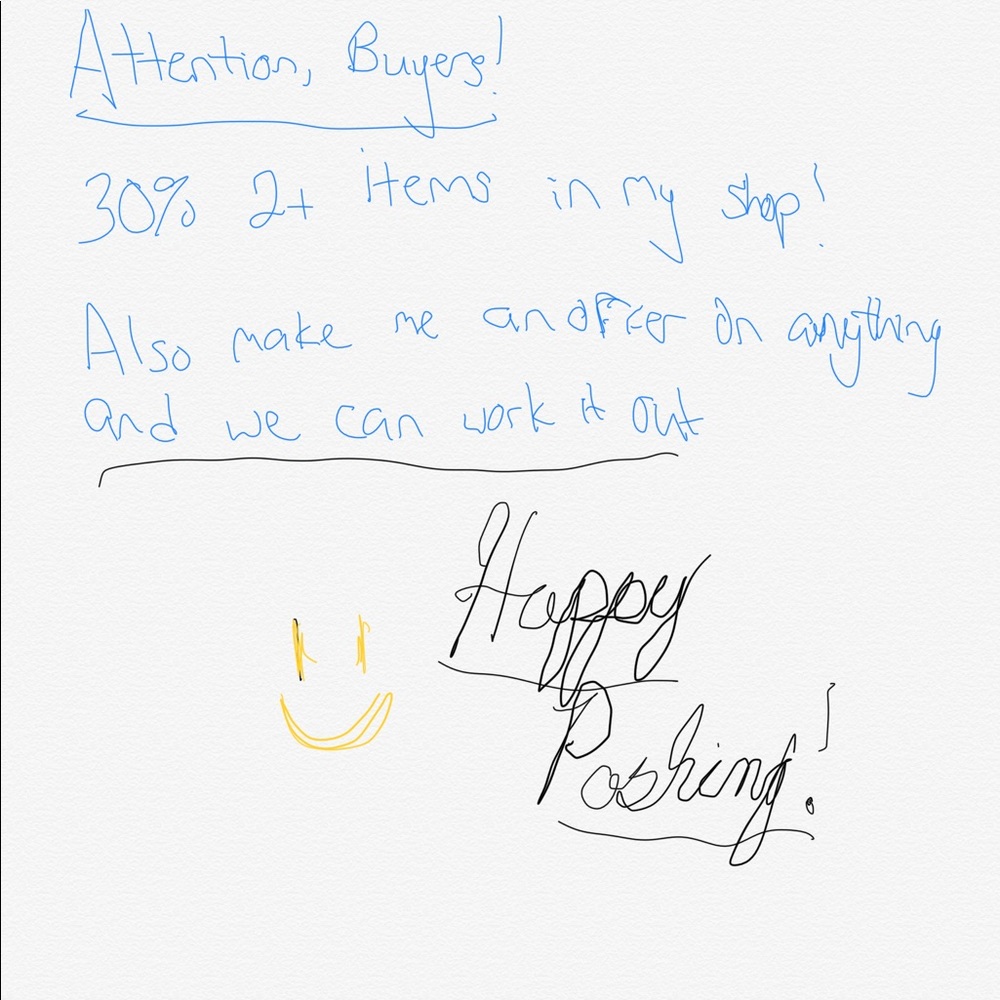 Attention, Buyers!
30% 2+ items in my shop!
Also make me an offer on anything
and we can work it out
Happy
Poshing!